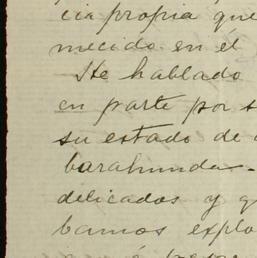 cia propia que
mecido en él
He hablado
en parte por s
su estado de
barahunda-
delicados y q
bamos explo